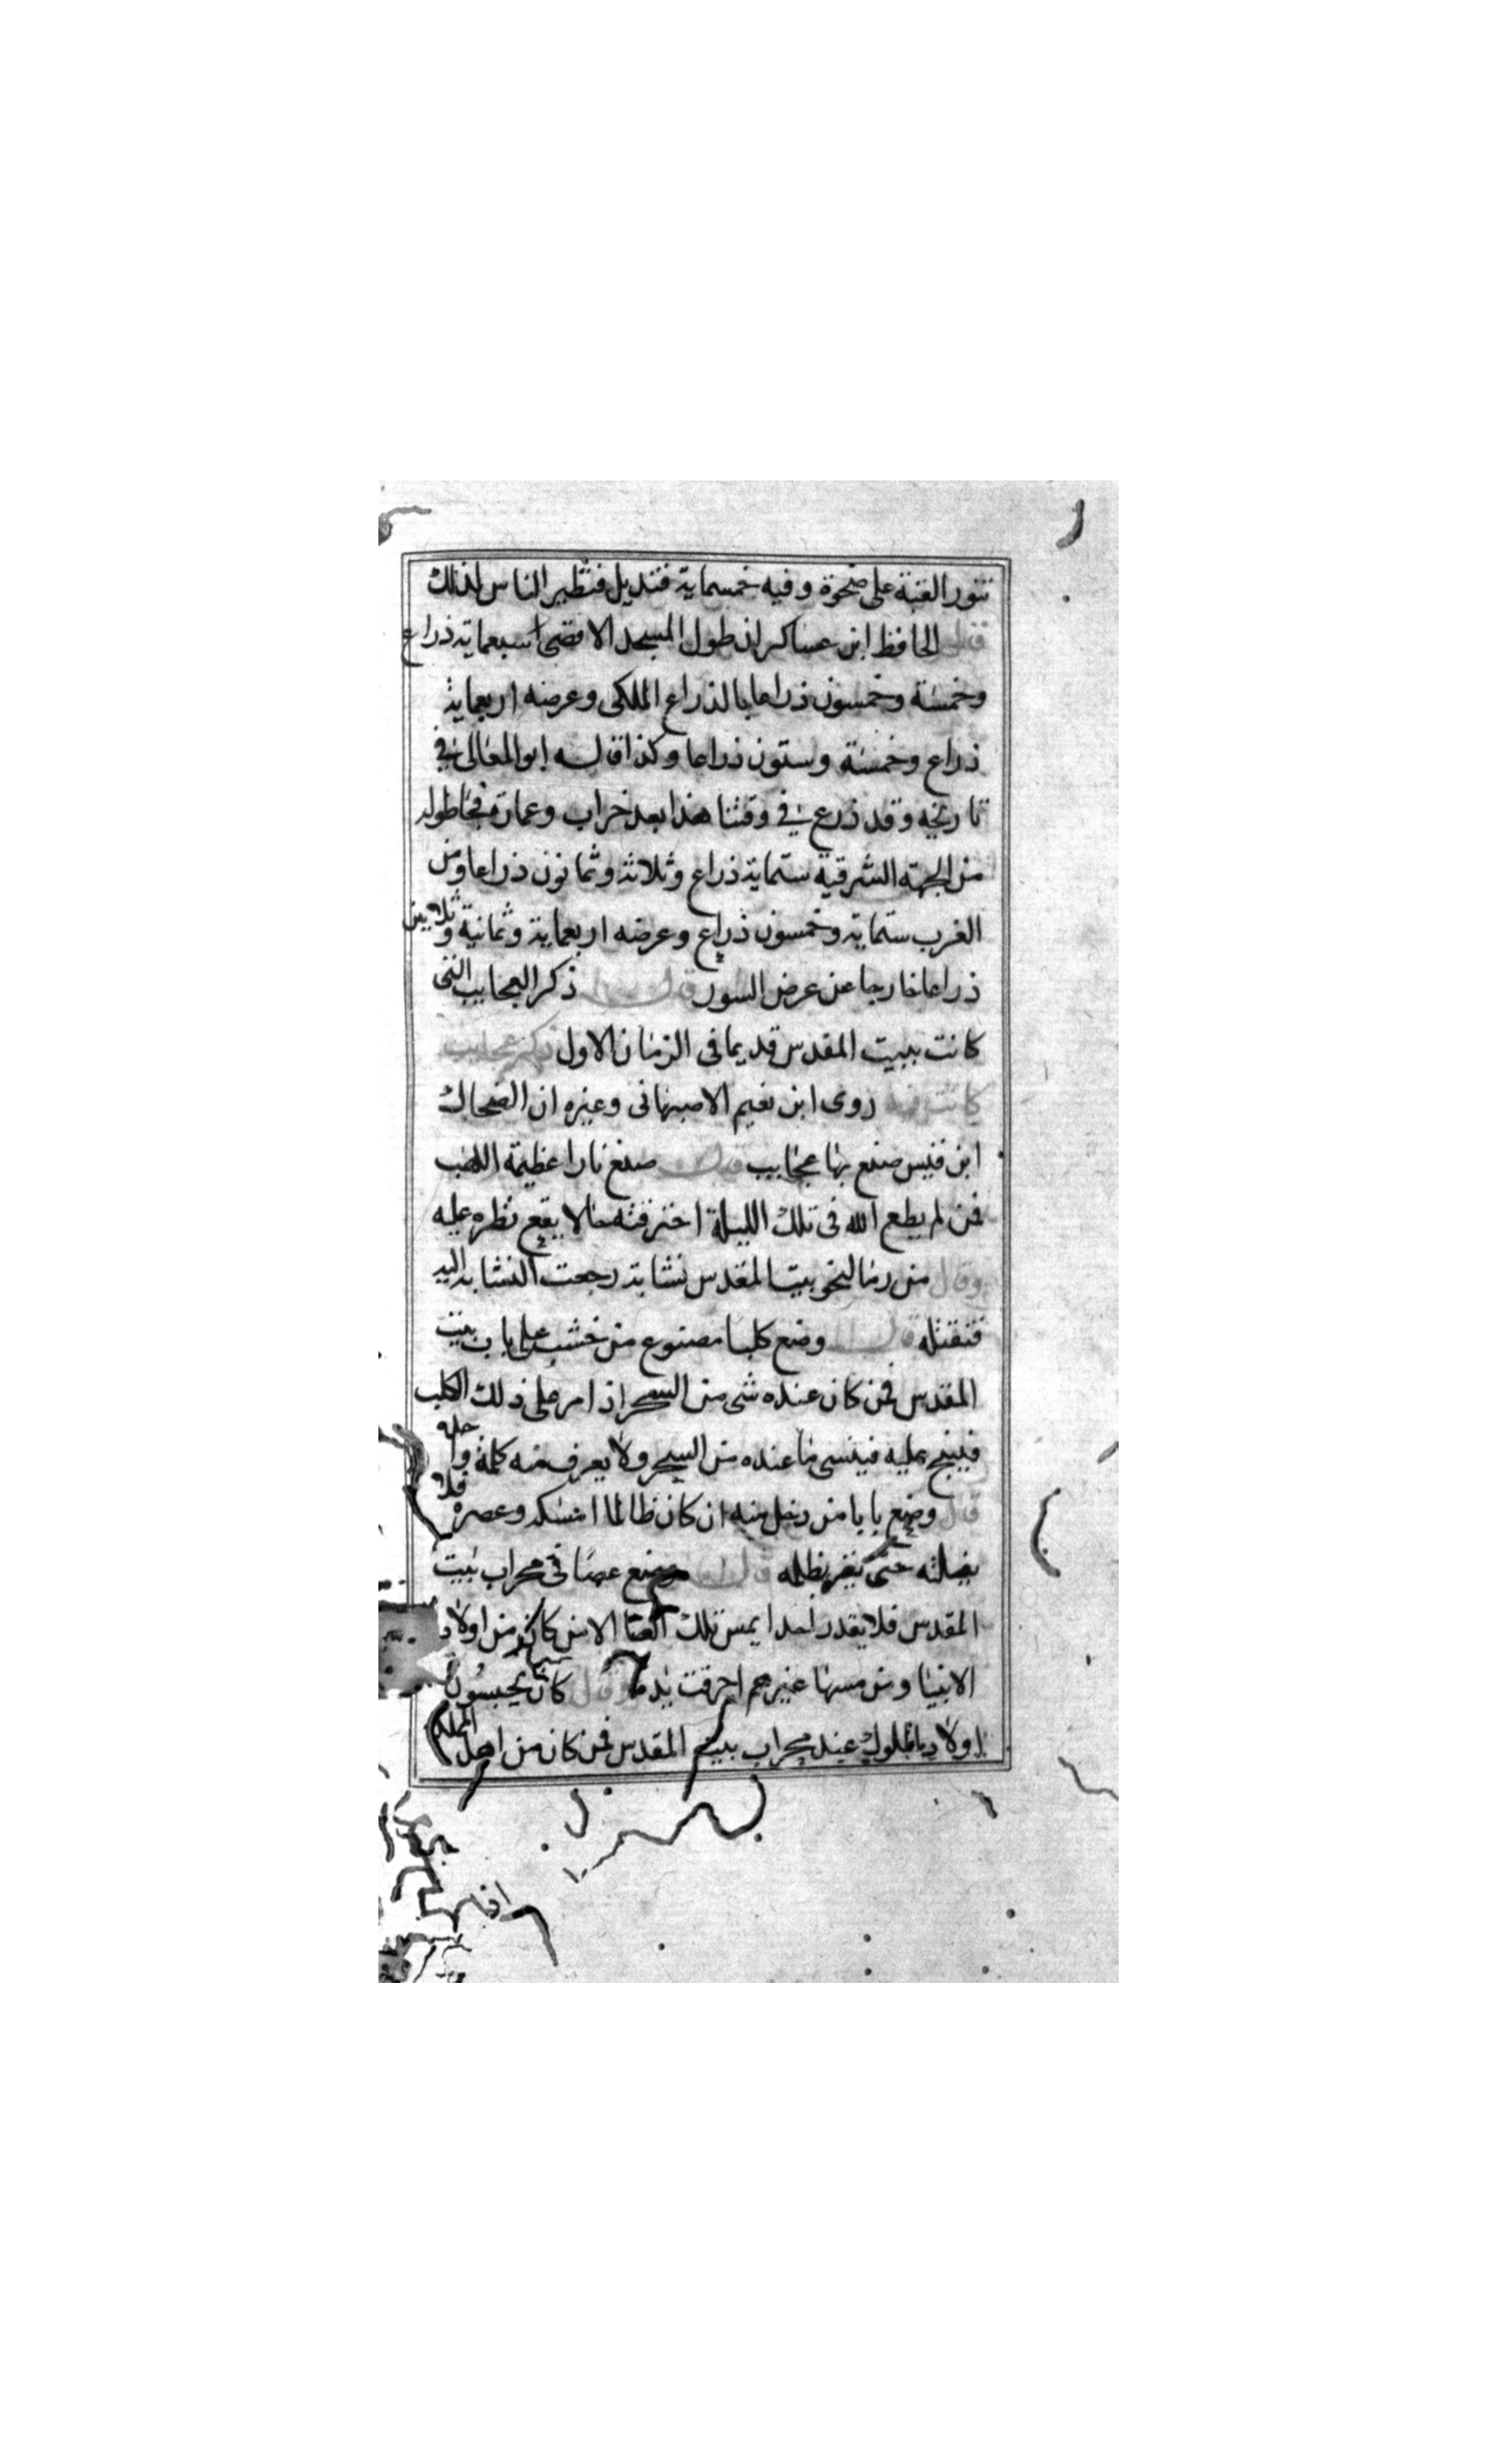 تنور القبة على صخرة وفيه خمسماية قنديل فتطير الناس لذلك
قال الحافظ ابن عساكر ان طول المسجد الاقصى سبعماية ذراع
وخمسة وخمسون ذراعا بالذراع الملكى وعرضه اربعماية
ذراع وخمسة وستون ذراعا وكذا قاله ابو المعالى في
تاريخه وقد ذرع في وقتنا هذا بعد خراب وعمارة فجا طوله
من الجهة الشرقية ستماية ذراع وثلاثة وثمانون ذراعا ومن
الغرب ستماية وخمسون ذراع وعرضه اربعماية وثمانية وثلاثين
ذراعا خارجا عن عرض السور ذكر العجايب التى
كانت ببيت المقدس قديما فى الزمان الاول ذكر عجايب
كانت فيه روى ابن نعيم الاصبهانى وغيره ان الضحاك
ابن قيس صنع بها عجايب صنع نارا عظيمة اللهب
فمن لم يطع الله فى تلك الليلة احترقته حالا يقع نظره عليه
وقال من رما لنحو بيت المقدس نشابة رجعت النشابه اليه
فتقتله قال وضع كلبا مصنوع من خشب على باب بيت
المقدس فمن كان عنده شى من السحر اذا مر على ذلك الكلب
فينبح عليه فينسى ما عنده من السحر ولا يعرف منه كلمة واحده
قال وضع بابا من دخل منه ان كان ظالما امسكه وعصره فلا
يفلته حتى يقر بظلمه وضع عصا فى محراب بيت
المقدس فلا يقدر احدا يمس تلك العصا الا من كان من اولاد
الانبيا ومن مسها غيرهم احرقت يده قال كان يحبسون
اولاد الملوك عند محراب بيت المقدس فمن كان من اهل المملكة